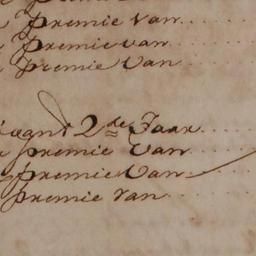 Premie Van
Premie van
Premie Van
2de Jaar
premie Van
premie Van
premie Van